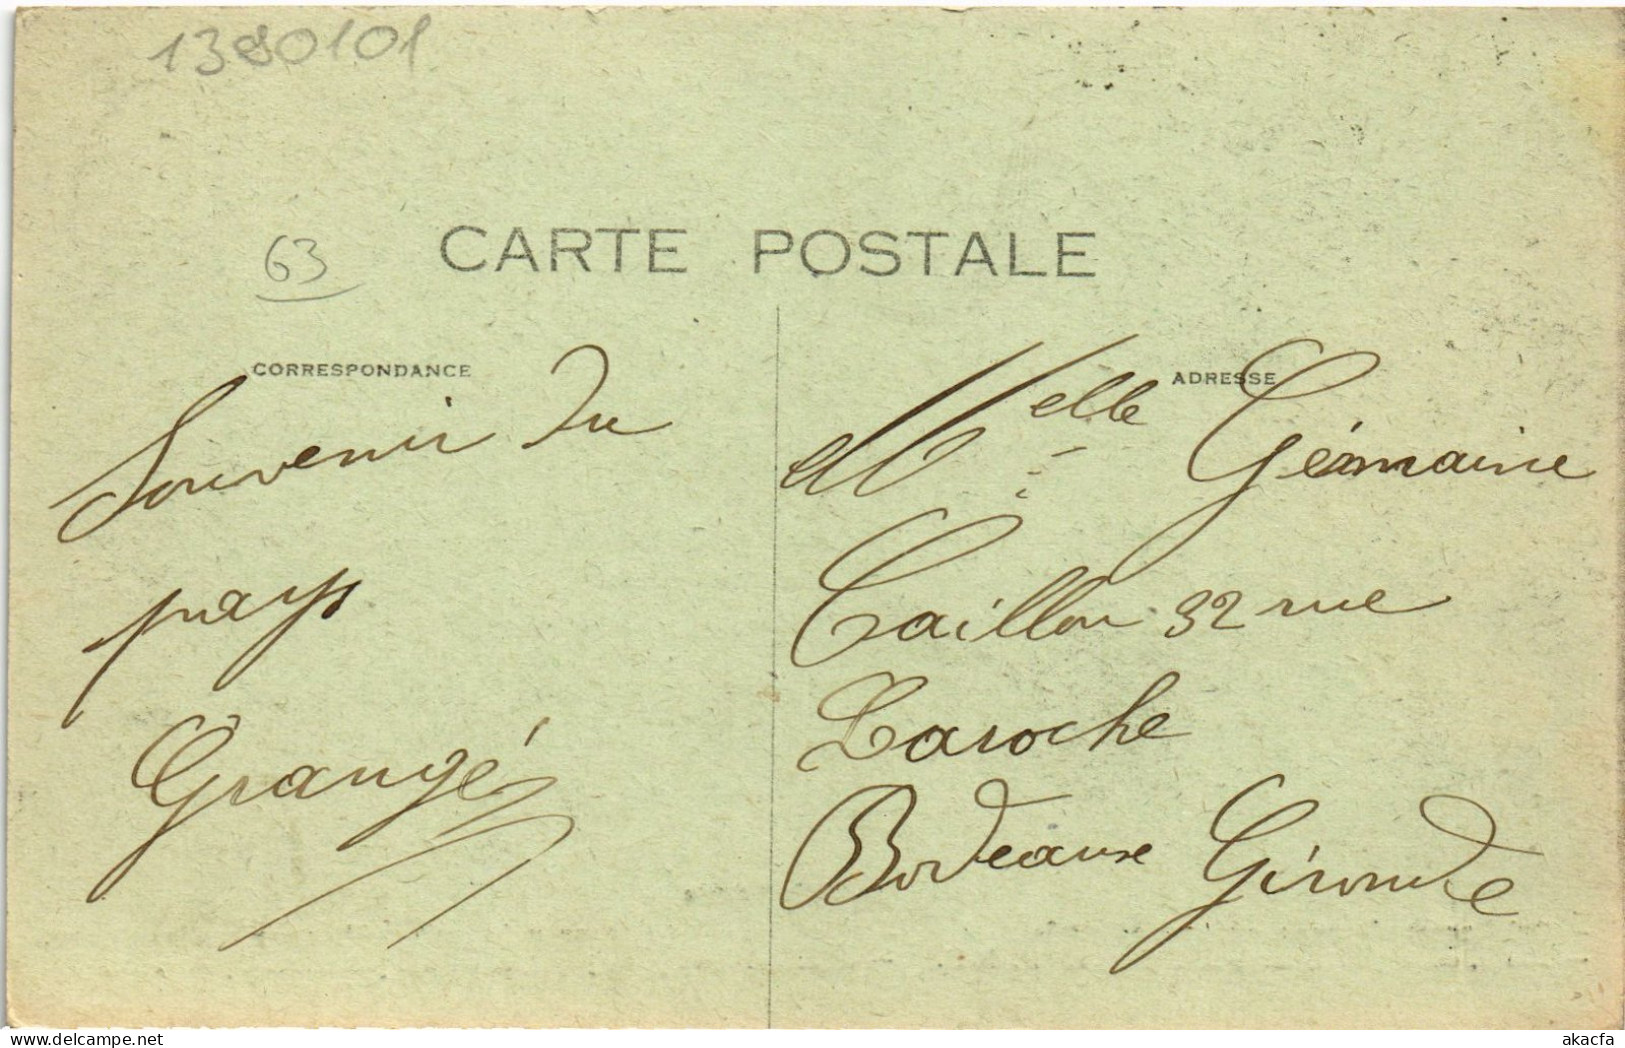 1390101
63
CARTE POSTALE
CORRESPONDANCE
Souvenir du
pays
Grangé
ADRESSE
Melle Germaine
Caillou 32 rue
Laroche
Bordeaux Gironde
akacfa